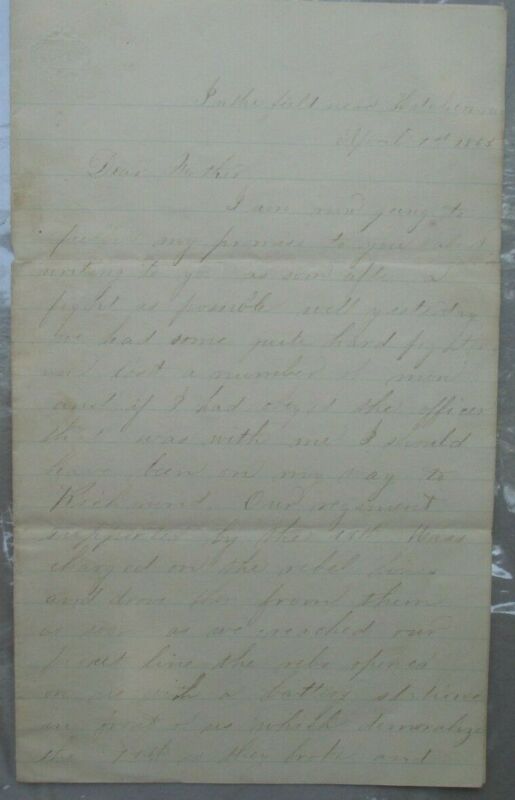 In the field near
April 1st 1865
Dear Mother
I am now going to
my promise to you about
writing to you as soon after a
fight as possible well yesterday
we had some quite hard fighting
and lost a number of men
and if I had obeyed the officer
that was with me I should
have been on my way to
Richmond. Our regiment
supported by the Mass
charged on the rebel lines
and drove them from them
as soon as we reached our
picket line the rebs opened
on us with a battery stationed
in front of us which demoralized
the as they broke and